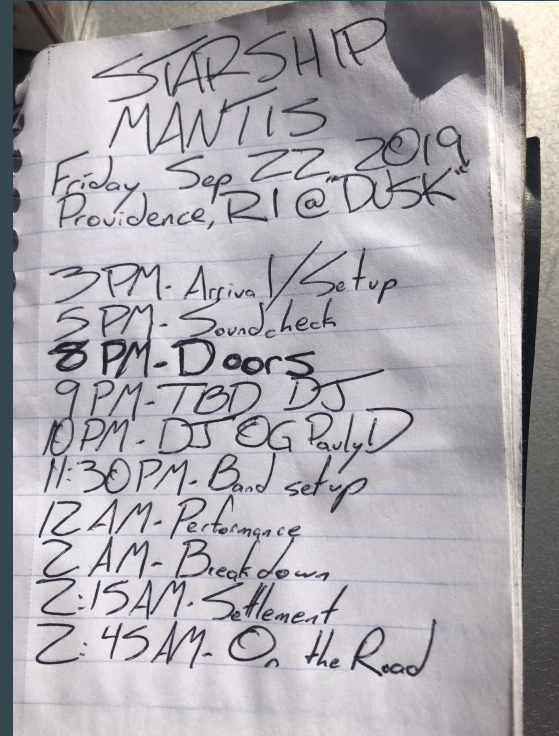 STARSHIP
MANTIS
Friday, Sep 22, 2019
Providence, RI @ "DUSK"
3 PM - Arrival/Setup
5 PM - Soundcheck
8 PM - Doors
9 PM - TBD DJ
10 PM - DJ OG Pauly D
11:30 PM - Band setup
12 AM - Performance
2 AM - Breakdown
2:15 AM - Settlement
2:45 AM - On the Road